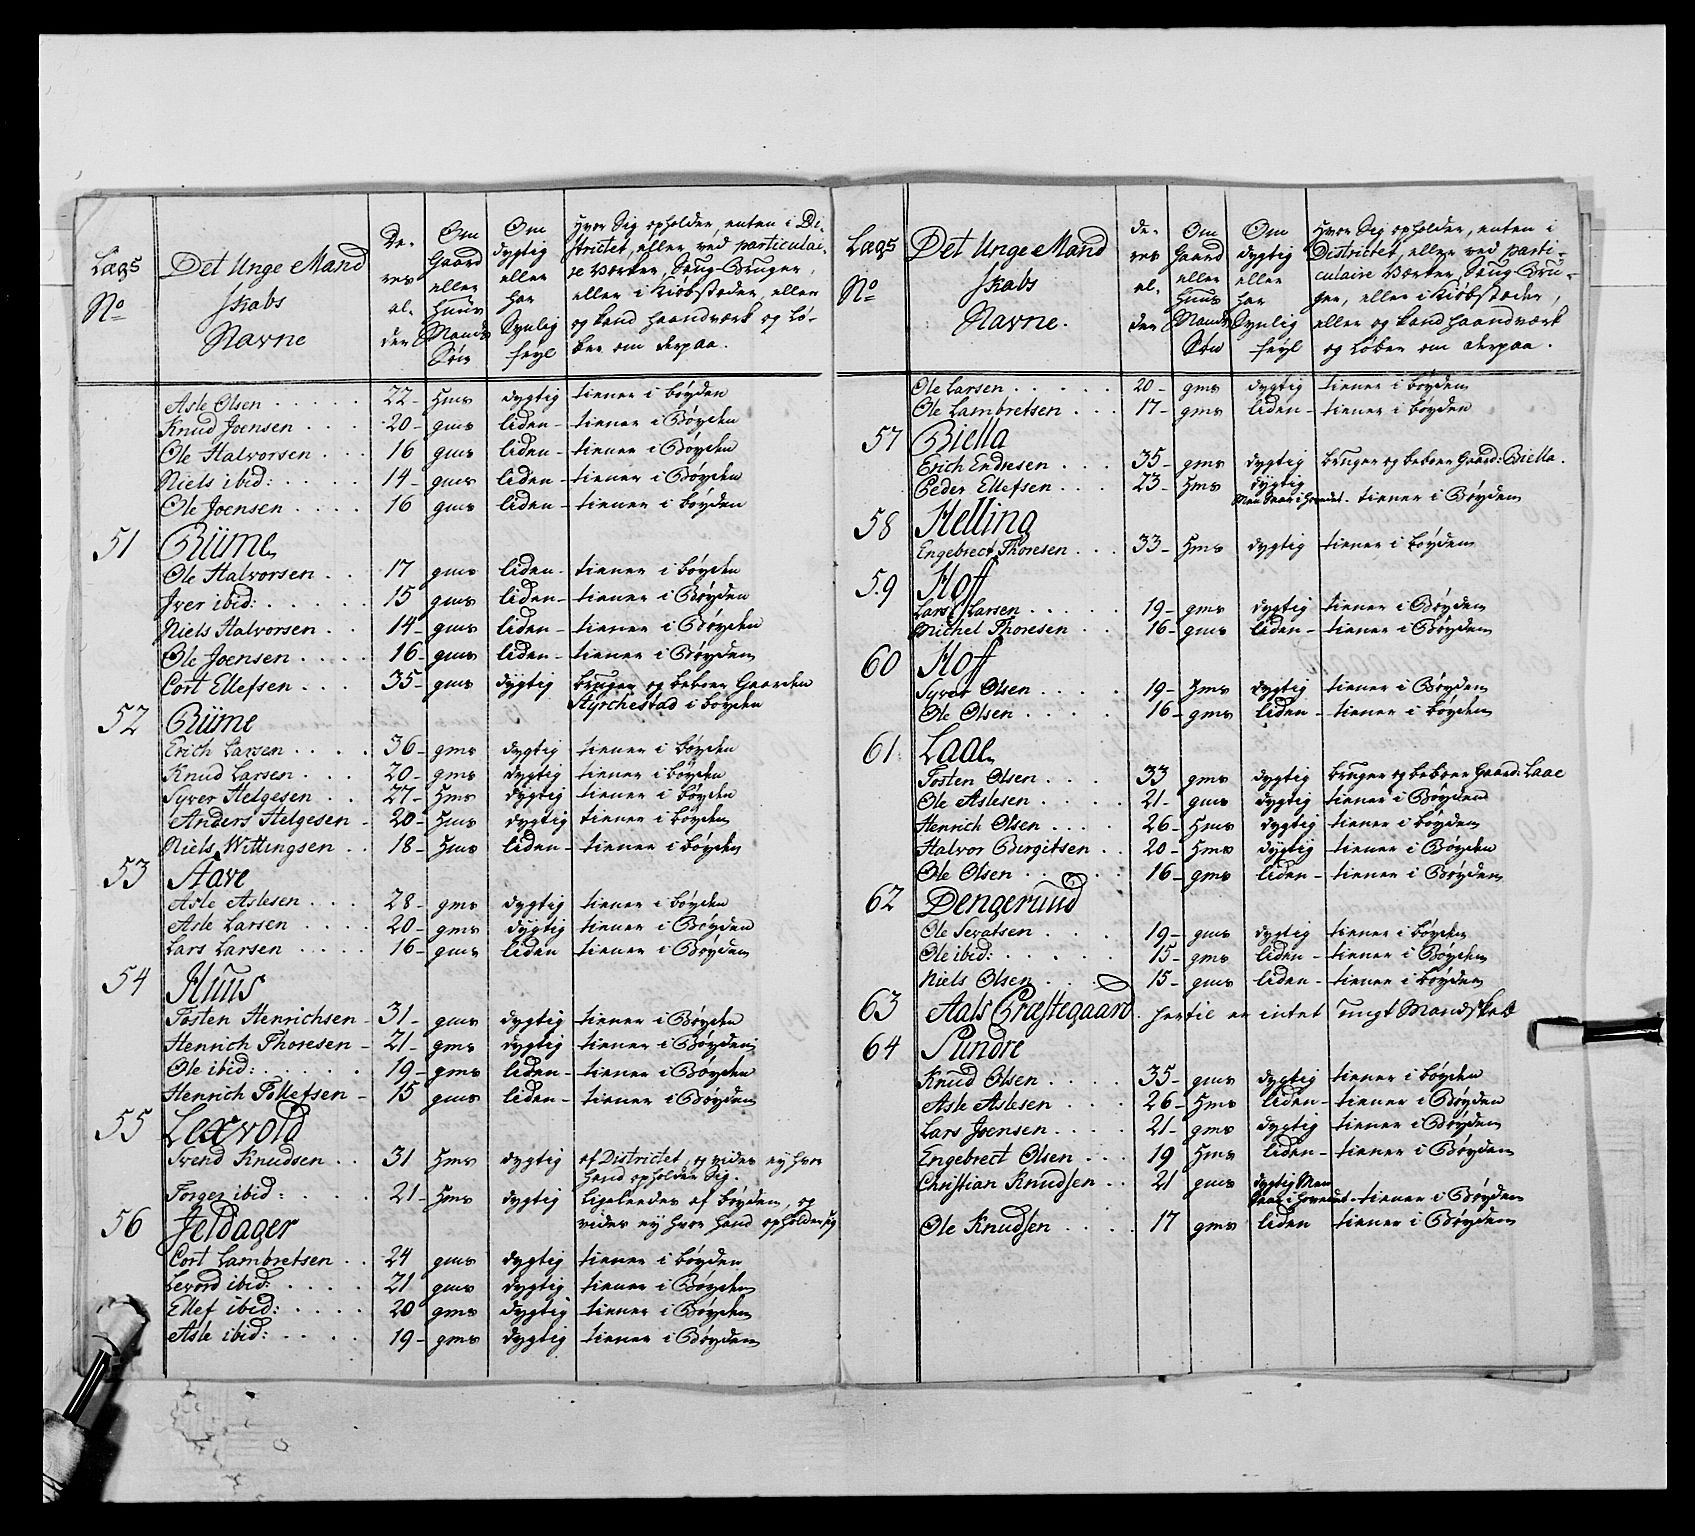 Lags
No
Det Unge Mand
skabs
Navne
De-
res
al-
der
Om
Gaard
eller
Huus
Mands
Søn
Om
dygtig
eller
har
Synlig
feyl
Hvor Sig opholder, enten i Di-
strictet, eller ved particulai-
re Værker, Saug-Bruger,
eller i Kiøbstæder, eller
og kand haandværk og lø-
ber om derpaa.
Asle Olsen 22- Hms dygtig tiener i bøyden
Knud Joensen 20- gms liden- tiener i Bøyden
Ole Halvorsen 16 gms liden- tiener i Bøyden
Niels ibid: 14- gms liden- tiener i Bøyden
Ole Joensen 16 gms liden- tiener i bøyden
51 Riime
Ole Halvorsen 17 gms liden- tiener i bøyden
Iver ibid: 15 gms liden- tiener i Bøyden
Niels Halvorsen 14- gms liden- tiener i Bøyden
Ole Joensen 16- gms liden- tiener i Bøyden
Cort Ellefsen 35- gms dygtig bruger og beboer Gaarden
Styrchestad i bøyden
52 Riime
Erich Larsen 36- gms dygtig tiener i bøyden
Knud Larsen 20- gms dygtig tiener i bøyden
Syver Helgesen 27- Hms dygtig tiener i bøyden
Anders Helgesen 20- Hms dygtig tiener i bøyden
Niels Wittingsen 18- Hms liden- tiener i bøyden
53 Aave
Asle Aslesen 28- gms dygtig tiener i bøyden
Asle Larsen 20- gms dygtig tiener i Bøyden
Lars Larsen 16- gms liden tiener i Bøyden
54 Huus
Tosten Henrichsen 31- gms dygtig tiener i Bøyden
Henrich Thoresen 21- gms dygtig tiener i Bøyden
Ole ibid: 19- gms liden- tiener i Bøyden
Henrich Tollefsen 15 gms liden- tiener i Bøyden
55 Lexvold
Svend Knudsen 31 Hms dygtig af Districtet, og vides ey hvor
hand opholder Sig.
Torger ibid: 21- Hms dygtig ligeleedes af bøyden, og
vides ey hvor hand opholder sig
56 Jeldager
Cort Lambretsen 24 gms dygtig tiener i bøyden
Levord ibid: 21 gms dygtig tiener i Bøyden
Ellef ibid: 20 gms dygtig tiener i Bøyden
Asle ibid: 19- gms dygtig tiener i Bøyden
Lags
No
Det Unge Mand
skabs
Navne.
de-
res
al-
der
Om
Gaard
eller
Huus
Mands
Søn
Om
dygtig
eller
har
Synlig
feyl
Hvor Sig opholder, enten i
Districtet, eller ved parti-
culaire Værker, Saug-Bru-
ger, eller i Kiøbstæder,
eller og kand haandværk
og løber om derpaa.
Ole Larsen 20- gms dygtig tiener i bøyden
Ole Lambretsen 17- gms liden- tiener i bøyden
57 Biella
Erich Endresen 35- gms dygtig bruger og beboer Gaard: Biella.
Peder Ellefsen 23- Hms dygtig
tiener i Bøyden
58 Helling
Engebrect Thoresen 33- Hms dygtig tiener i bøyden
59 Hoff
Lars Larsen 19- gms dygtig tiener i Bøyden
Michel Thoresen 16- gms liden- tiener i Bøyden
60 Hoff
Syver Olsen 19- Hms dygtig tiener i Bøyden
Ole Olsen 16- gms liden- tiener i bøyden
61 Laae
Tosten Olsen 33 gms dygtig bruger og beboer Gaard: Laae
Ole Aslesen 21- gms dygtig tiener i Bøyden
Henrich Olsen 26- Hms dygtig tiener i bøyden
Halvor Burgitsen 20- Hms dygtig tiener i Bøyden
Ole Olsen 16- gms liden- tiener i Bøyden
62 Dengeruud
Ole Sevatsen 19- gms dygtig tiener i bøyden
Ole ibid: 15- gms liden- tiener i Bøyden
Niels Olsen 15- gms liden- tiener i bøyden
63 Aals Præstegaard. hertil er intet ungt Mandskab
64 Sundre
Knud Olsen 35- gms dygtig tiener i bøyden
Asle Aslesen 26- Hms liden- tiener i Bøyden
Lars Joensen 21- gms dygtig tiener i Bøyden
Engebrect Olsen 19 Hms liden- tiener i Bøyden
Christian Knudsen 21 gms dygtig
tiener i Bøyden
Ole Knudsen 17 gms liden tiener i Bøyden